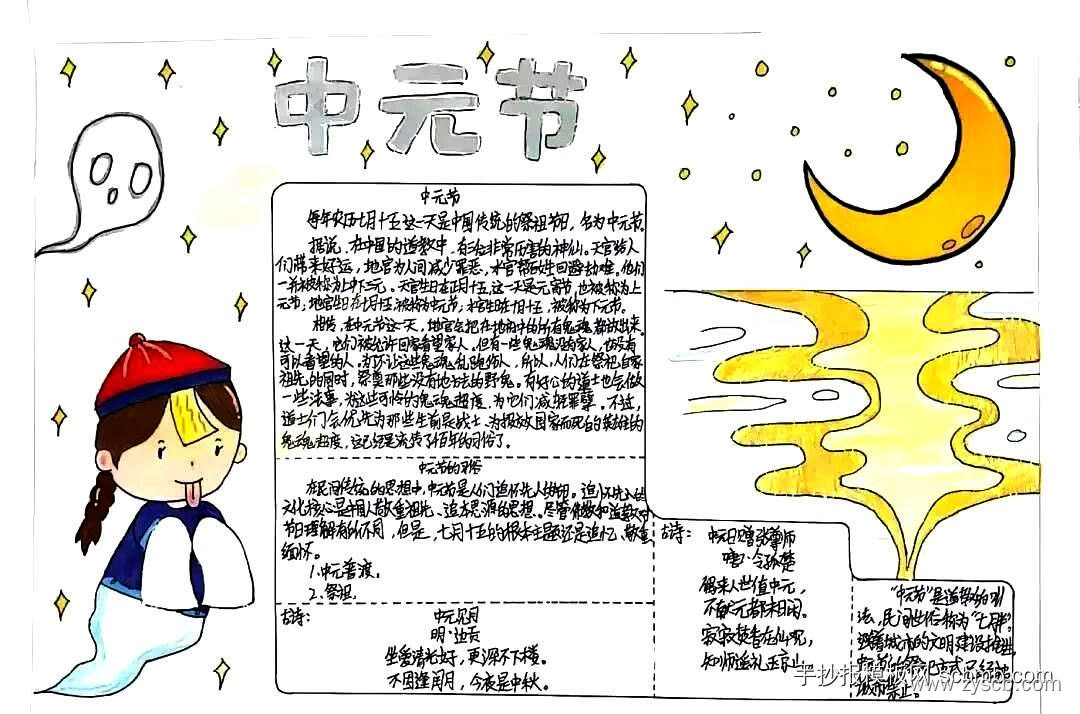 中元节
中元节
每年农历七月十五这一天是中国传统的祭祖节日，名为中元节。
据说，在中国的道教中，有三位非常厉害的神仙。天官给人
们带来好运，地官为人间减少罪恶，水官帮助众生回避劫难。他们
一并被称为上中下三元。天官生日在正月十五，这一天是元宵节，也被称为上
元节，地官生日在七月十五，被称为中元节，水官生在十月十五，被称为下元节。
相传，在中元节这一天，地官会把在地府中的所有鬼魂都放出来。
这一天，它们被允许回家看望家人。但有一些鬼魂没有家人，也没有
可以看望的人，为了不让这些鬼魂乱跑伤人，所以，人们在祭祀自家
祖先的同时，祭奠那些没有地方住的野鬼。有好心的道士也会做
一些法事，为这些可怜的鬼魂超度，为它们减轻罪孽。不过，
道士们会优先为那些生前是战士、为报效国家而死的英雄的
鬼魂超度，这已经是流传了百年的习俗了。
中元节的习俗
在民间传统的思想中，中元节是人们追怀先人的节日。追怀先人的
文化核心是中国人敬重祖先、追本思源的思想。尽管佛教和道教对
节日理解有所不同，但是，七月十五的根本主题还是追忆、敬重
缅怀。
1.中元普渡。
2.祭祖
古诗：
中元见月
明·边贡
坐爱清光好，更深不下楼。
不因逢闰月，今夜是中秋。
古诗：
中元日赠张尊师
唐·令狐楚
偶来人世值中元，
不献元都永日闲。
寂寂焚香在仙观，
知师遥礼玉京山。
“中元节”是道教的叫
法，民间世俗称为“七月半”，
随着城市的文明建设推进，
城市禁止。
手抄报模板网 scbmb.com
www.zyscb.com